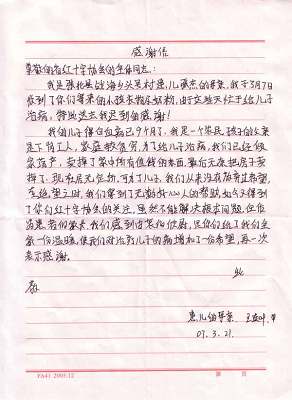 感谢信
尊敬的省红十字协会的全体同志:
我是张北县战海乡头号村患儿 的母亲,我于3月7日
收到了你们寄来的 ,由于在近天忙于给儿子
治病, 迟到的感谢!
我的儿子得白血病已9个月了,我是一个农民,孩子的父亲
是下岗工人,家庭 贫穷,为了给儿子治病,我们已经倾
家荡产,变掉了家中所有值钱的东西,最后无奈把房子卖
掉了,现如居无定所,可为了儿子,我们从来没有放弃过希望,
在绝望之时,我们得到了无数好心人的帮助,如今又得到
了你们红十字协会的关注,虽然不能解决根本问题,但作
为患者的家长,我们感到 ,是你们给了我们全
家一份温暖,使我们对治好儿子的病增加了一份希望,再一次
表示感谢。
此
致
患儿的母亲 王
07.3.21.
PA41 2005.12
第 页